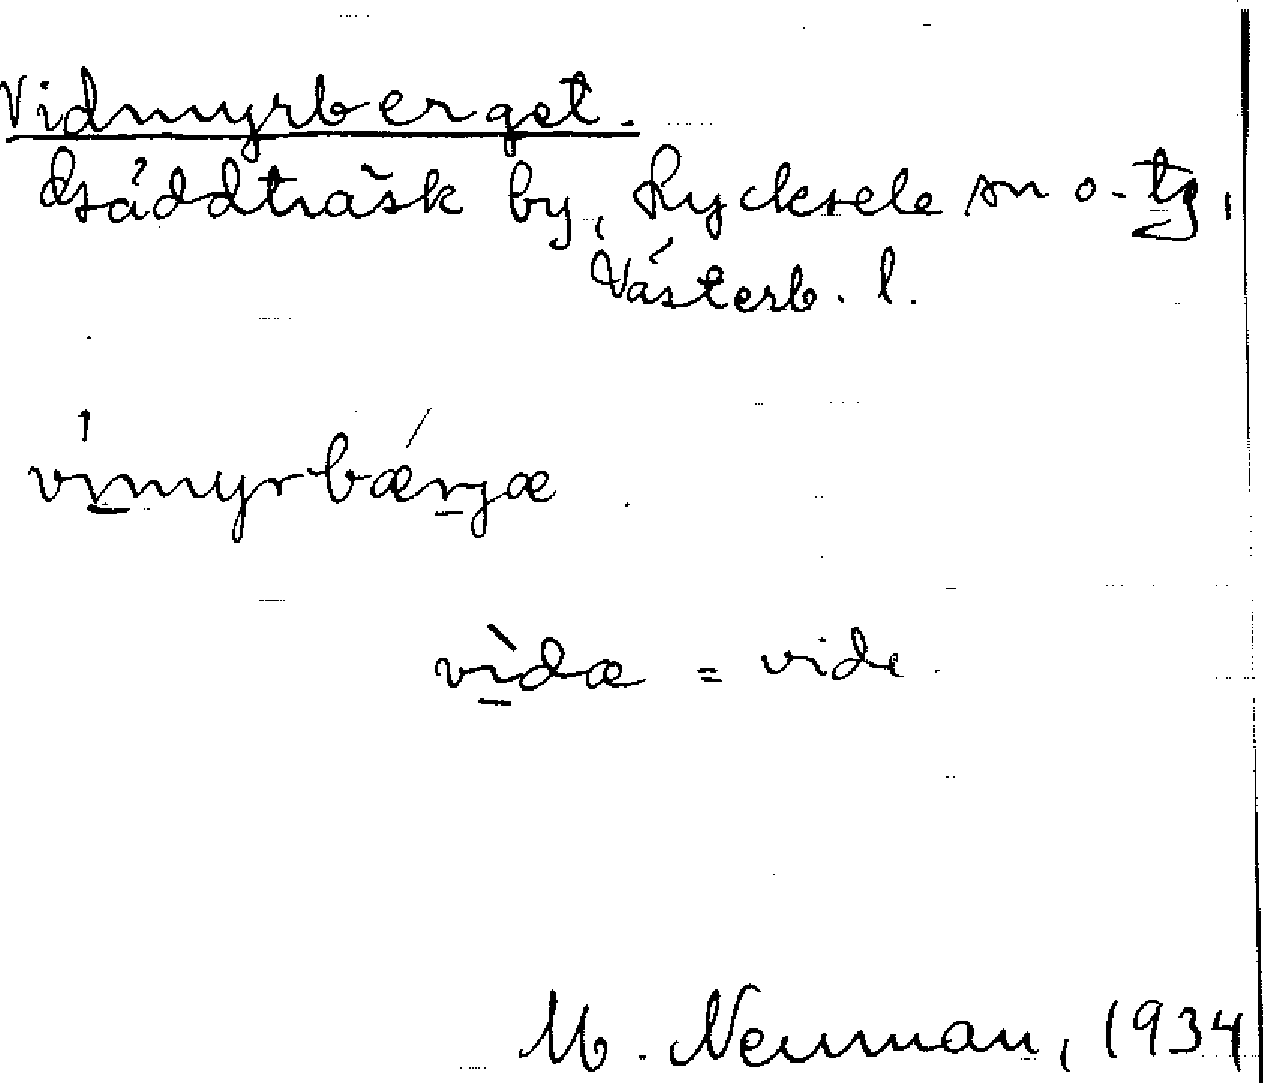 Vidmyrberget.
Bräddträsk by, Lycksele sn o. tg,
Västerb. l.
vímyrbærjæ
vìdæ = vide
M. Neuman, 1934